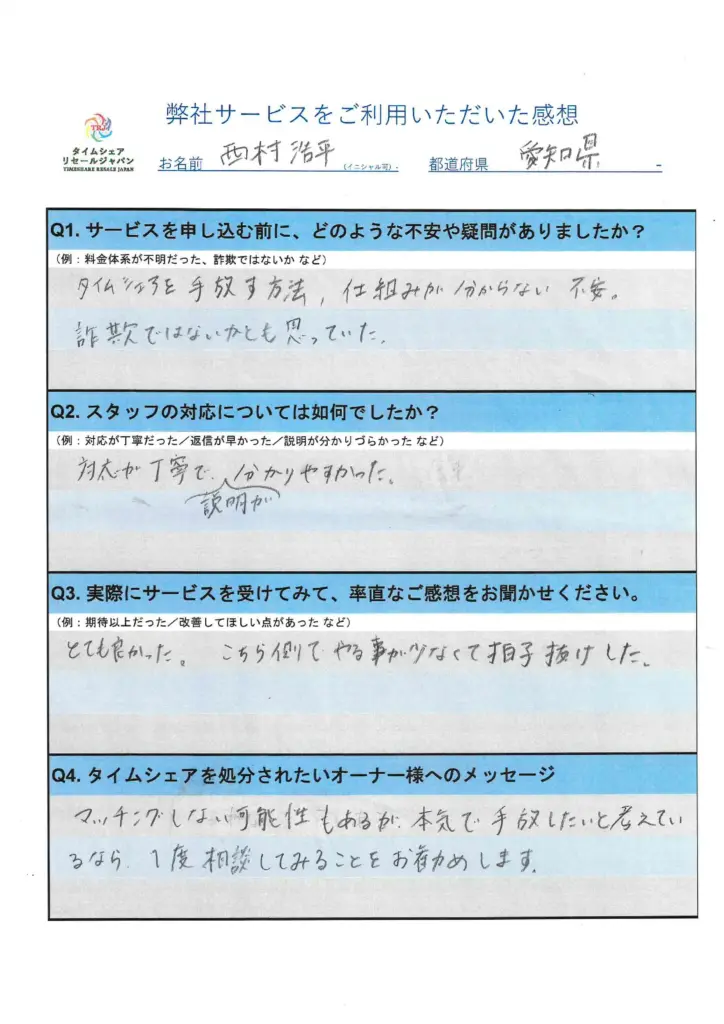 弊社サービスをご利用いただいた感想
TRJ
タイムシェア
リセールジャパン
TIMESHARE RESALE JAPAN
お名前 西村浩平 (イニシャル可)
都道府県 愛知県
Q1. サービスを申し込む前に、どのような不安や疑問がありましたか？
（例：料金体系が不明だった、詐欺ではないか など）
タイムシェアを手放す方法，仕組みが分からない 不安。
詐欺ではないかとも思っていた。
Q2. スタッフの対応については如何でしたか？
（例：対応が丁寧だった／返信が早かった／説明が分かりづらかった など）
対応が丁寧で、分かりやすかった。
説明が
Q3. 実際にサービスを受けてみて、率直なご感想をお聞かせください。
（例：期待以上だった／改善してほしい点があった など）
とても良かった。 こちら側でやる事が少なくて拍子抜けした。
Q4. タイムシェアを処分されたいオーナー様へのメッセージ
マッチングしない可能性もあるが、本気で手放したいと考えてい
るなら、1度相談してみることをお勧めします。